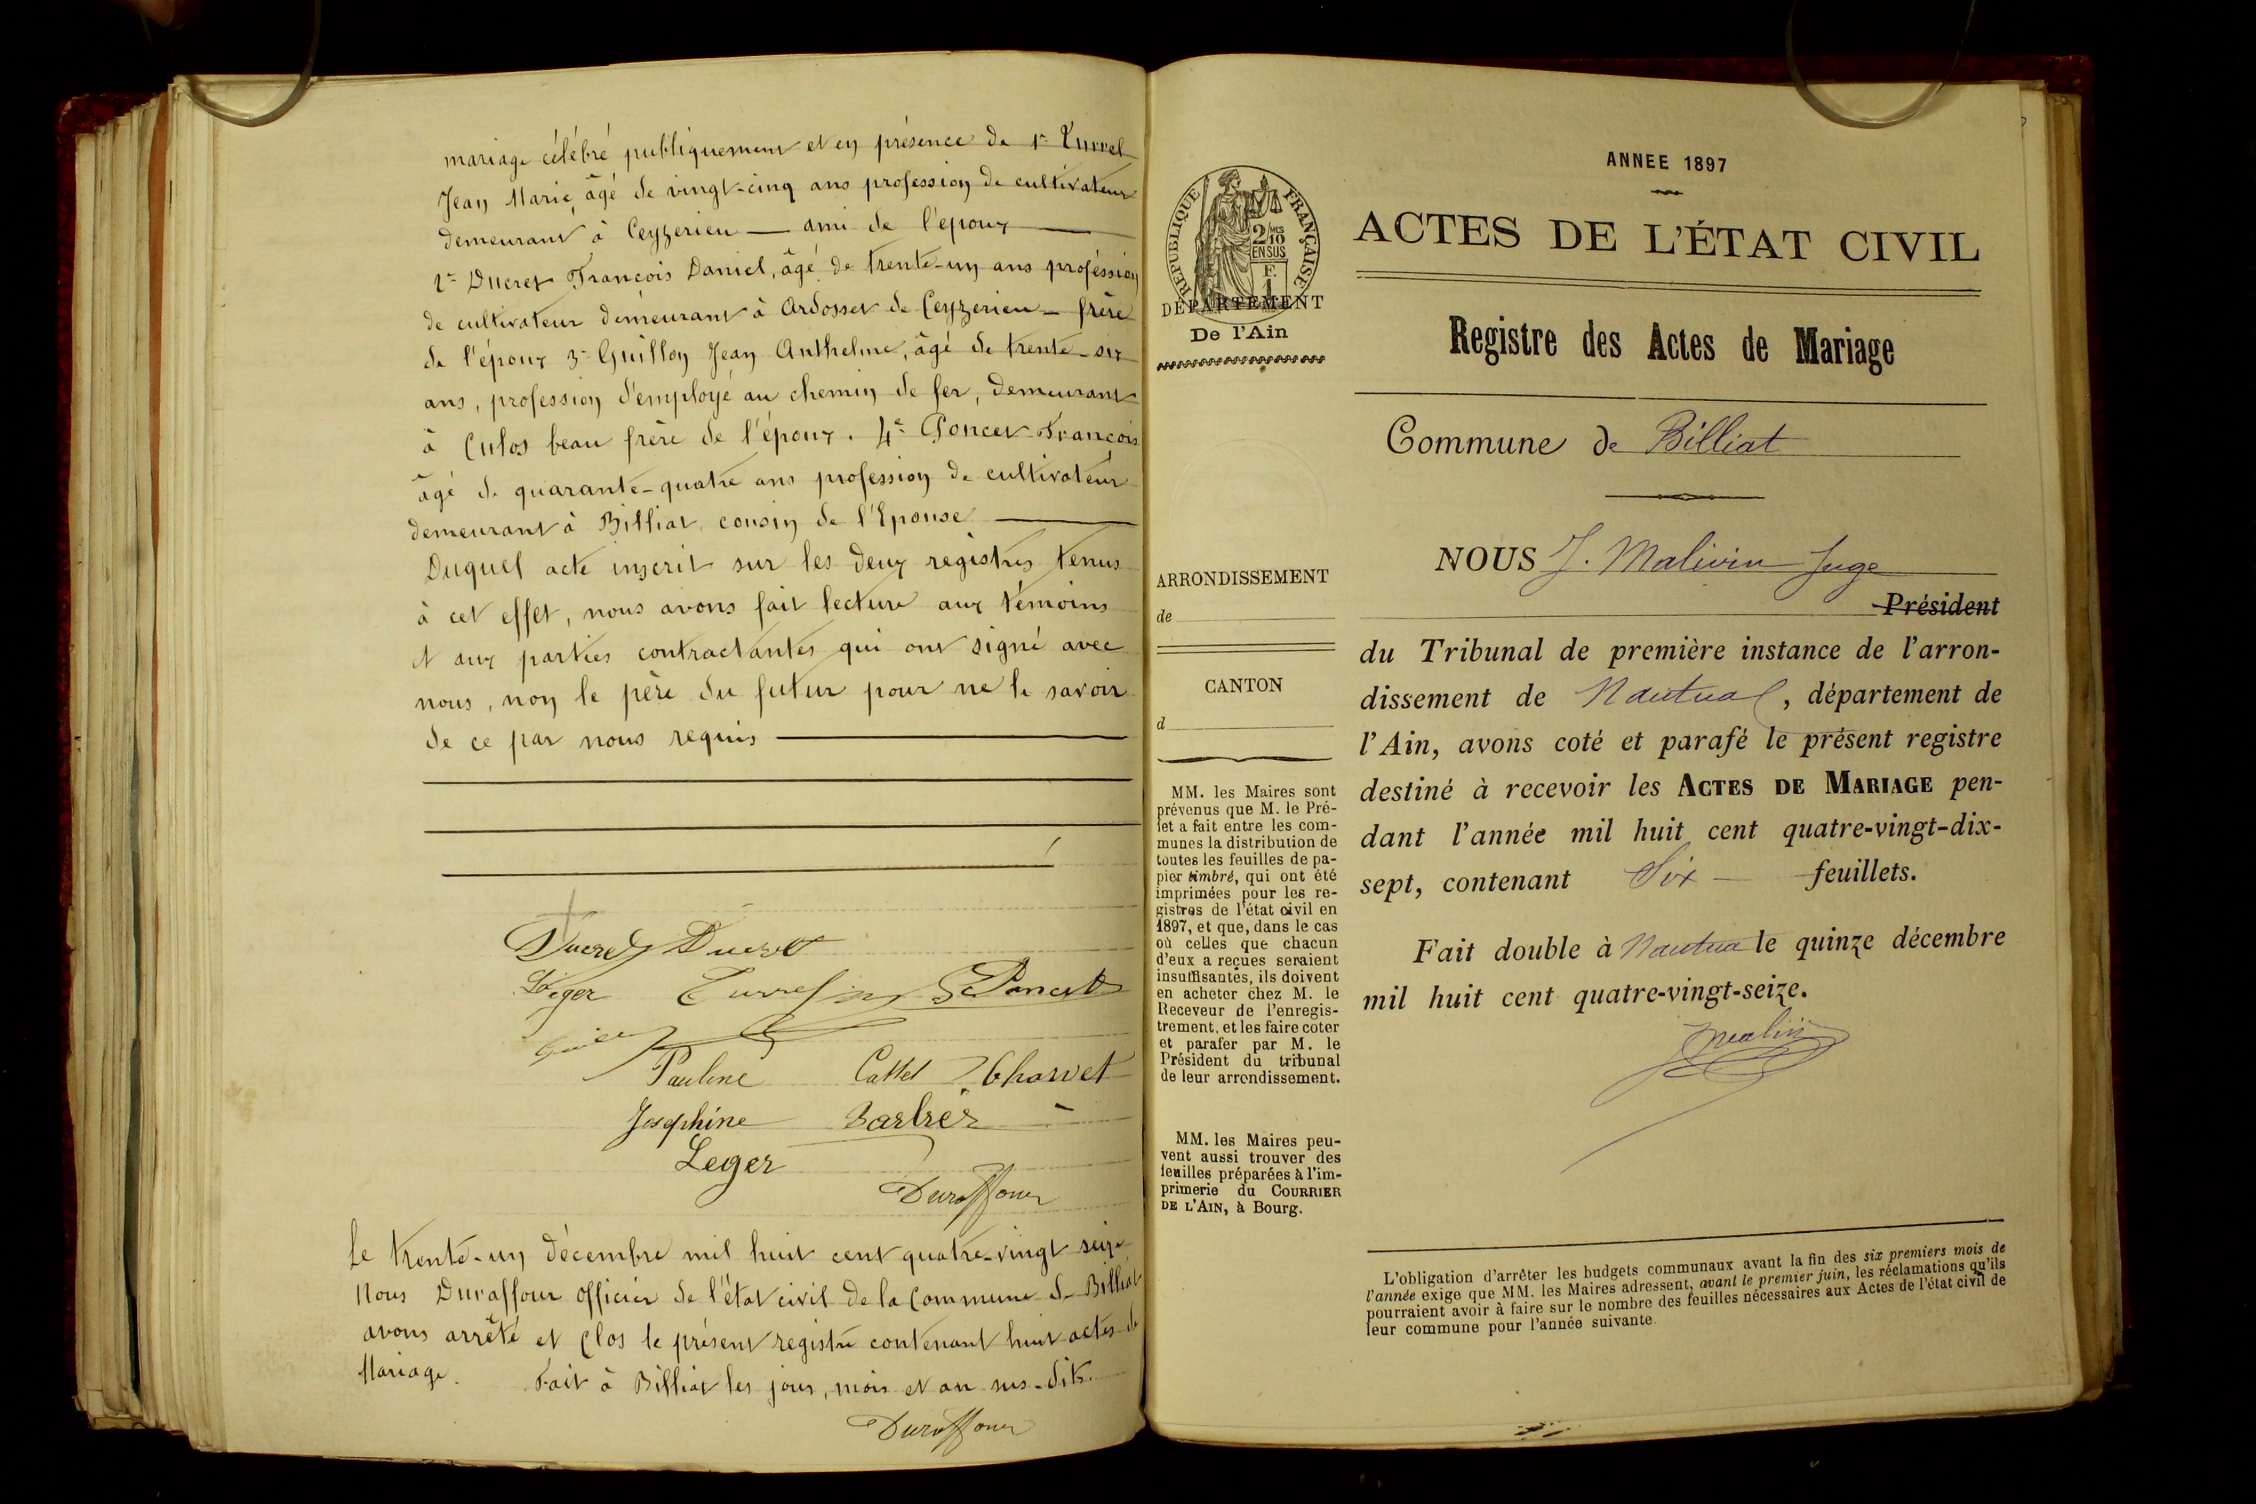 mariage célébré publiquement et en présence de 1° Turrel
Jean Marie, âgé de vingt-cinq ans profession de cultivateur
demeurant à Ceyzerieu — ami de l'époux —
2° Ducret François Daniel, âgé de trente-un ans profession
de cultivateur demeurant à Ardosset de Ceyzerieu — frère
de l'époux 3° Guillon Jean Anthelme, âgé de trente-six
ans, profession d'employé au chemin de fer, demeurant
à Culoz beau frère de l'époux. 4° Poncet François
âgé de quarante-quatre ans profession de cultivateur
demeurant à Billiat cousin de l'Epouse —
Duquel acte inscrit sur les deux registres tenus
à cet effet, nous avons fait lecture aux témoins
et aux parties contractantes qui ont signé avec
nous, non le père du futur pour ne le savoir
de ce par nous requis —
Ducret Ducret
Léger Turrel Poncet
Pauline Cattet Charvet
Joséphine Barbier
Leger
Duraffour
Le trente-un décembre mil huit cent quatre-vingt seize
Nous Duraffour officier de l'état civil de la Commune de Billiat
avons arrêté et clos le présent registre contenant huit actes de
Mariage. Fait à Billiat les jour, mois et an sus-dits.
Duraffour
RÉPUBLIQUE FRANÇAISE
2/10 MES
EN SUS
F.
1
DÉPARTEMENT
De l'Ain
ARRONDISSEMENT
de
CANTON
d
MM. les Maires sont
prévenus que M. le Pré-
fet a fait entre les com-
munes la distribution de
toutes les feuilles de pa-
pier timbré, qui ont été
imprimées pour les re-
gistres de l'état civil en
1897, et que, dans le cas
où celles que chacun
d'eux a reçues seraient
insuffisantes, ils doivent
en acheter chez M. le
Receveur de l'enregis-
trement, et les faire coter
et parafer par M. le
Président du tribunal
de leur arrondissement.
MM. les Maires peu-
vent aussi trouver des
feuilles préparées à l'im-
primerie du COURRIER
DE L'AIN, à Bourg.
ANNEE 1897
ACTES DE L'ÉTAT CIVIL
Registre des Actes de Mariage
Commune de Billiat
NOUS J. Malivin Juge
Président
du Tribunal de première instance de l'arron-
dissement de Nantua, département de
l'Ain, avons coté et parafé le présent registre
destiné à recevoir les ACTES DE MARIAGE pen-
dant l'année mil huit cent quatre-vingt-dix-
sept, contenant Six — feuillets.
Fait double à Nantua le quinze décembre
mil huit cent quatre-vingt-seize.
L'obligation d'arrêter les budgets communaux avant la fin des six premiers mois de
l'année exige que MM. les Maires adressent, avant le premier juin, les réclamations qu'ils
pourraient avoir à faire sur le nombre des feuilles nécessaires aux Actes de l'état civil de
leur commune pour l'année suivante.